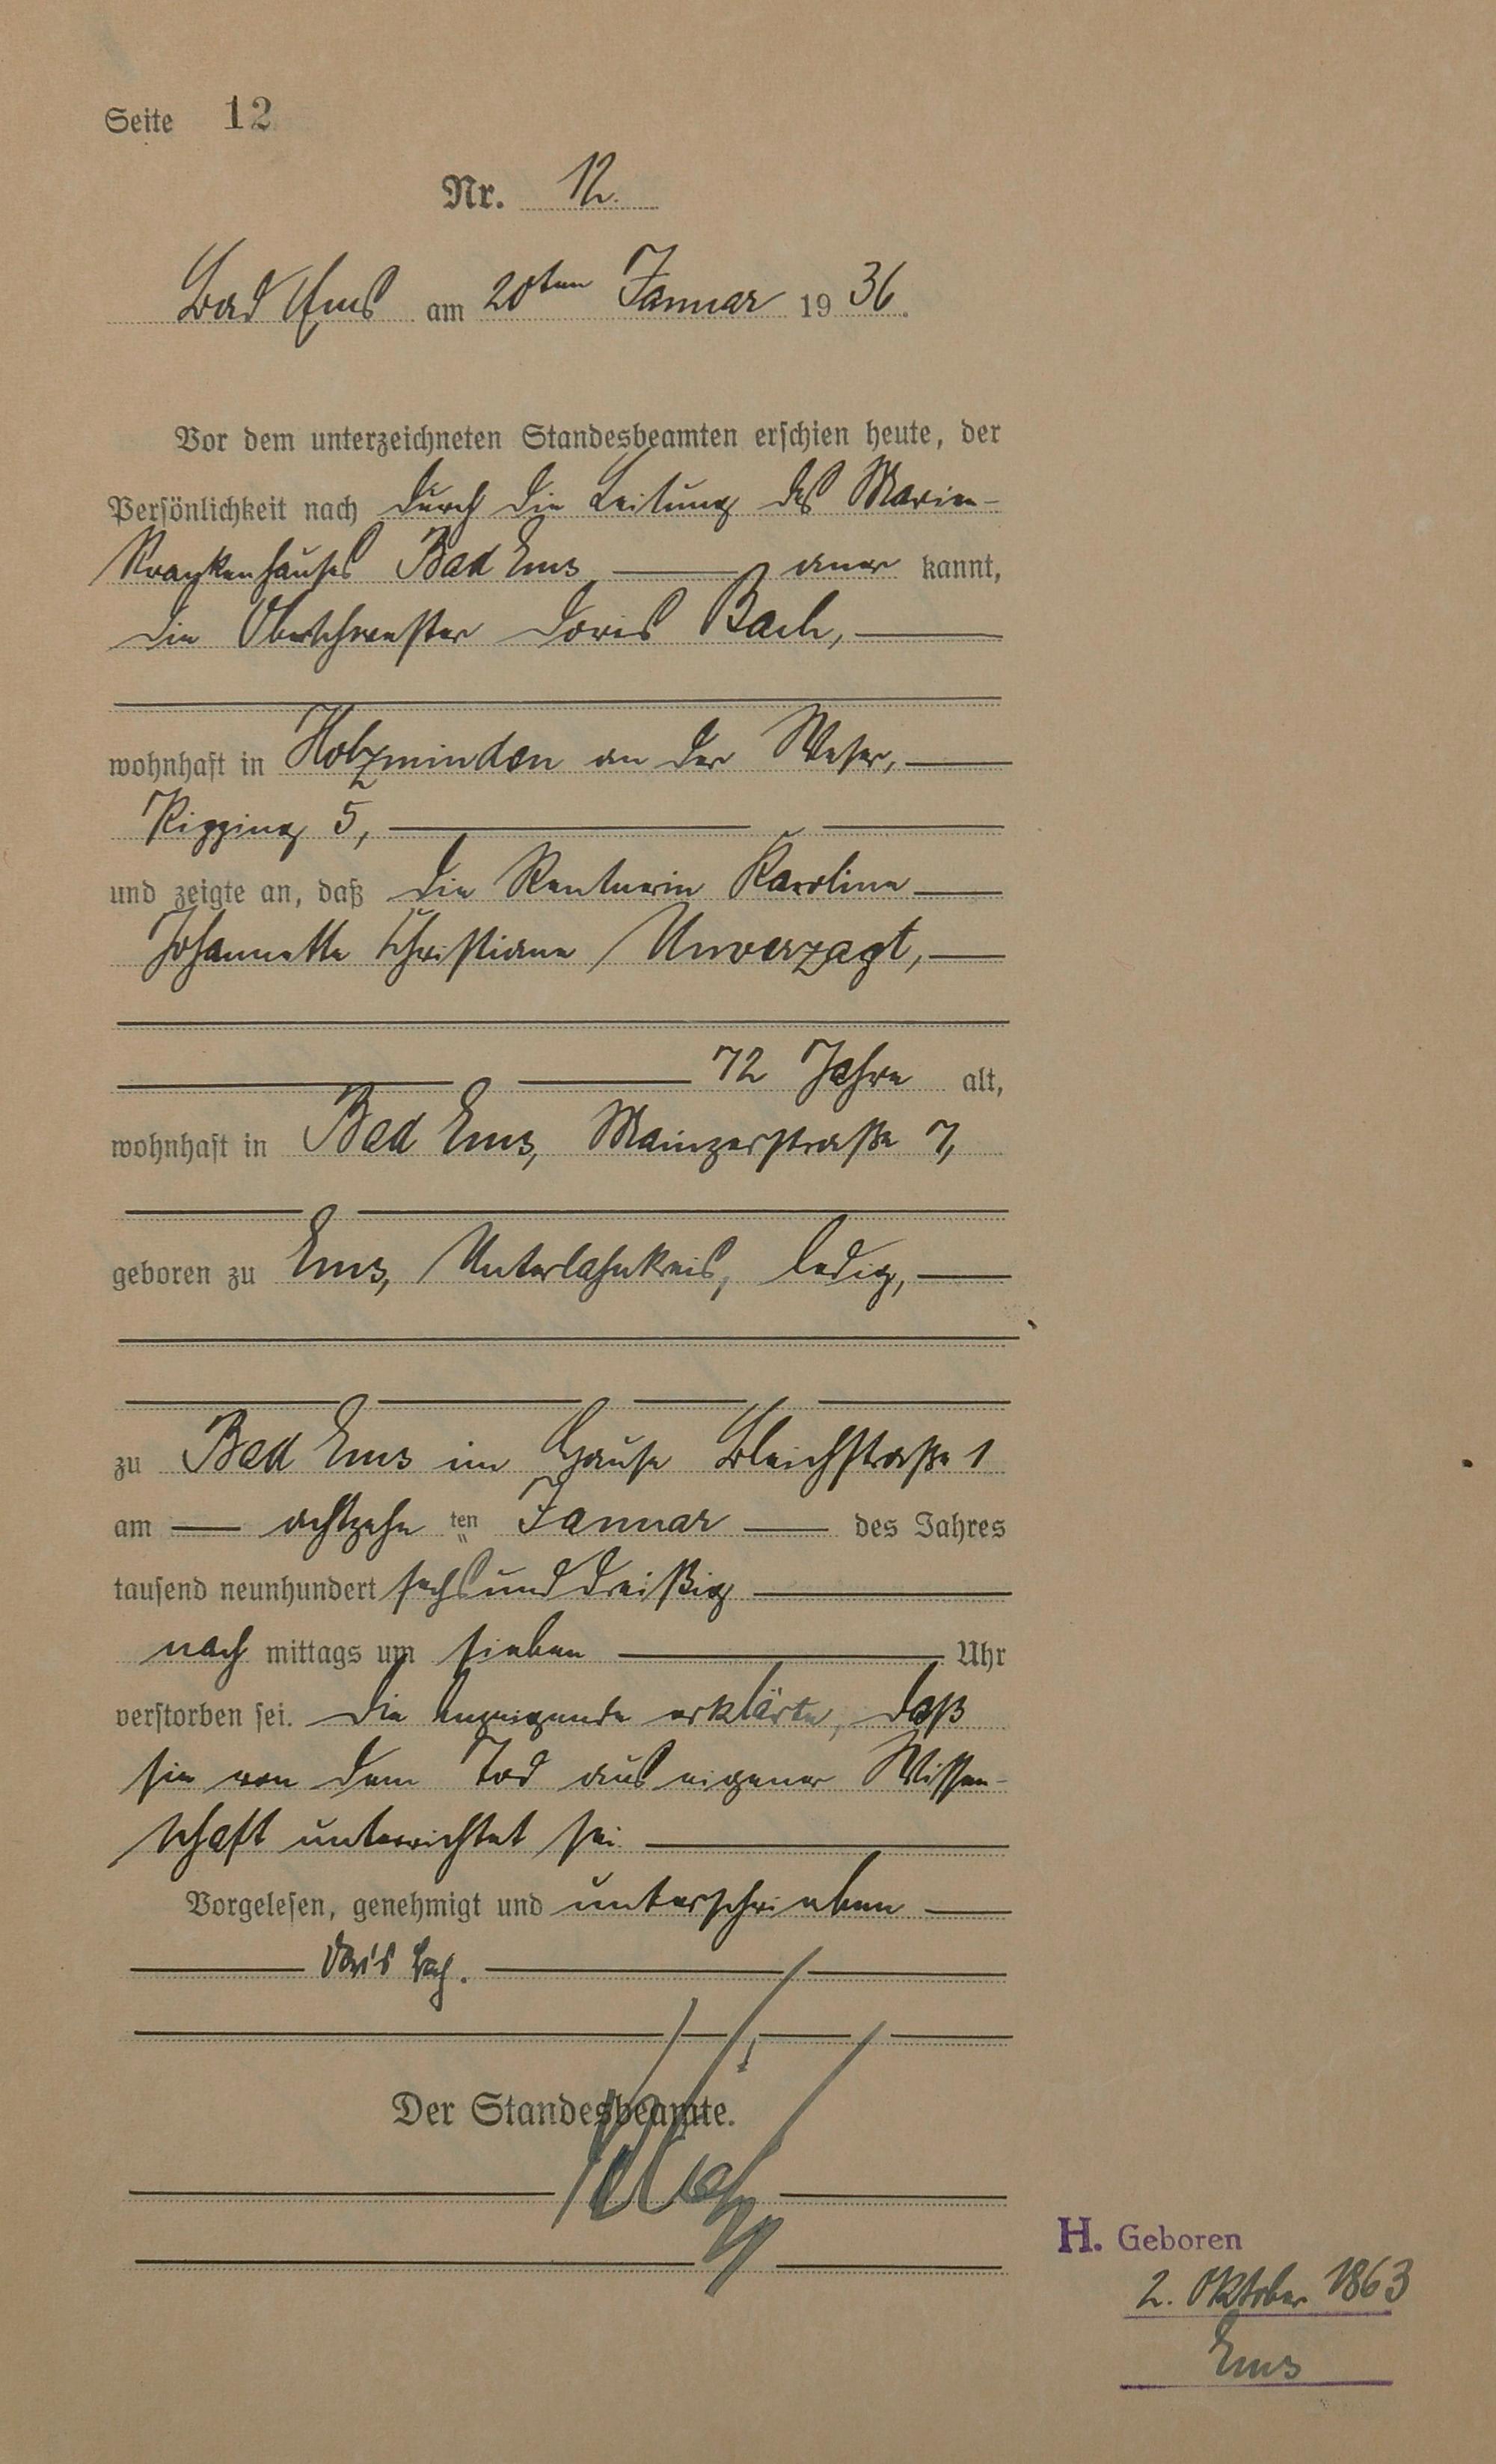 Seite 12
Nr. 12.
Bad Ems am 20ten Januar 19 36.
Vor dem unterzeichneten Standesbeamten erschien heute, der
Persönlichkeit nach durch die Leitung des Marien-
Krankenhauses Bad Ems aner kannt,
die Oberschwester Doris Bach,
wohnhaft in Holzminden an der Weser,
5,
und zeigte an, daß die Rentnerin Karoline
Johannette Christiane Unverzagt,
72 Jahre alt,
wohnhaft in Bad Ems, Mainzerstraße 7,
geboren zu Ems, Unterlahnkreis, ledig,
zu Bad Ems im Hause Bleichstraße 1
am achtzehn ten Januar des Jahres
tausend neunhundert sechsunddreißig
nach mittags um sieben Uhr
verstorben sei. Die Anzeigende erklärte, daß
sie von dem Tod aus eigener Wissen-
schaft unterrichtet sei
Vorgelesen, genehmigt und unterschrieben
Doris Bach.
Der Standesbeamte.
H. Geboren
2. Oktober 1863
Ems